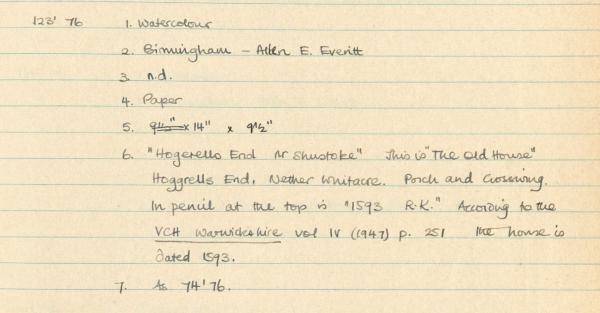 123' 76 1. Watercolour
2. Birmingham - Allen E. Everitt
3. n.d.
4. Paper
5. 9½" x 14" x 9½"
6. "Hogerells End Nr Shustoke" This is "The Old House"
Hoggrells End, Nether Whitacre. Porch and Crosswing.
In pencil at the top is "1593 R.K." According to the
VCH Warwickshire vol IV (1947) p. 251 the house is
dated 1593.
7. As 74' 76.